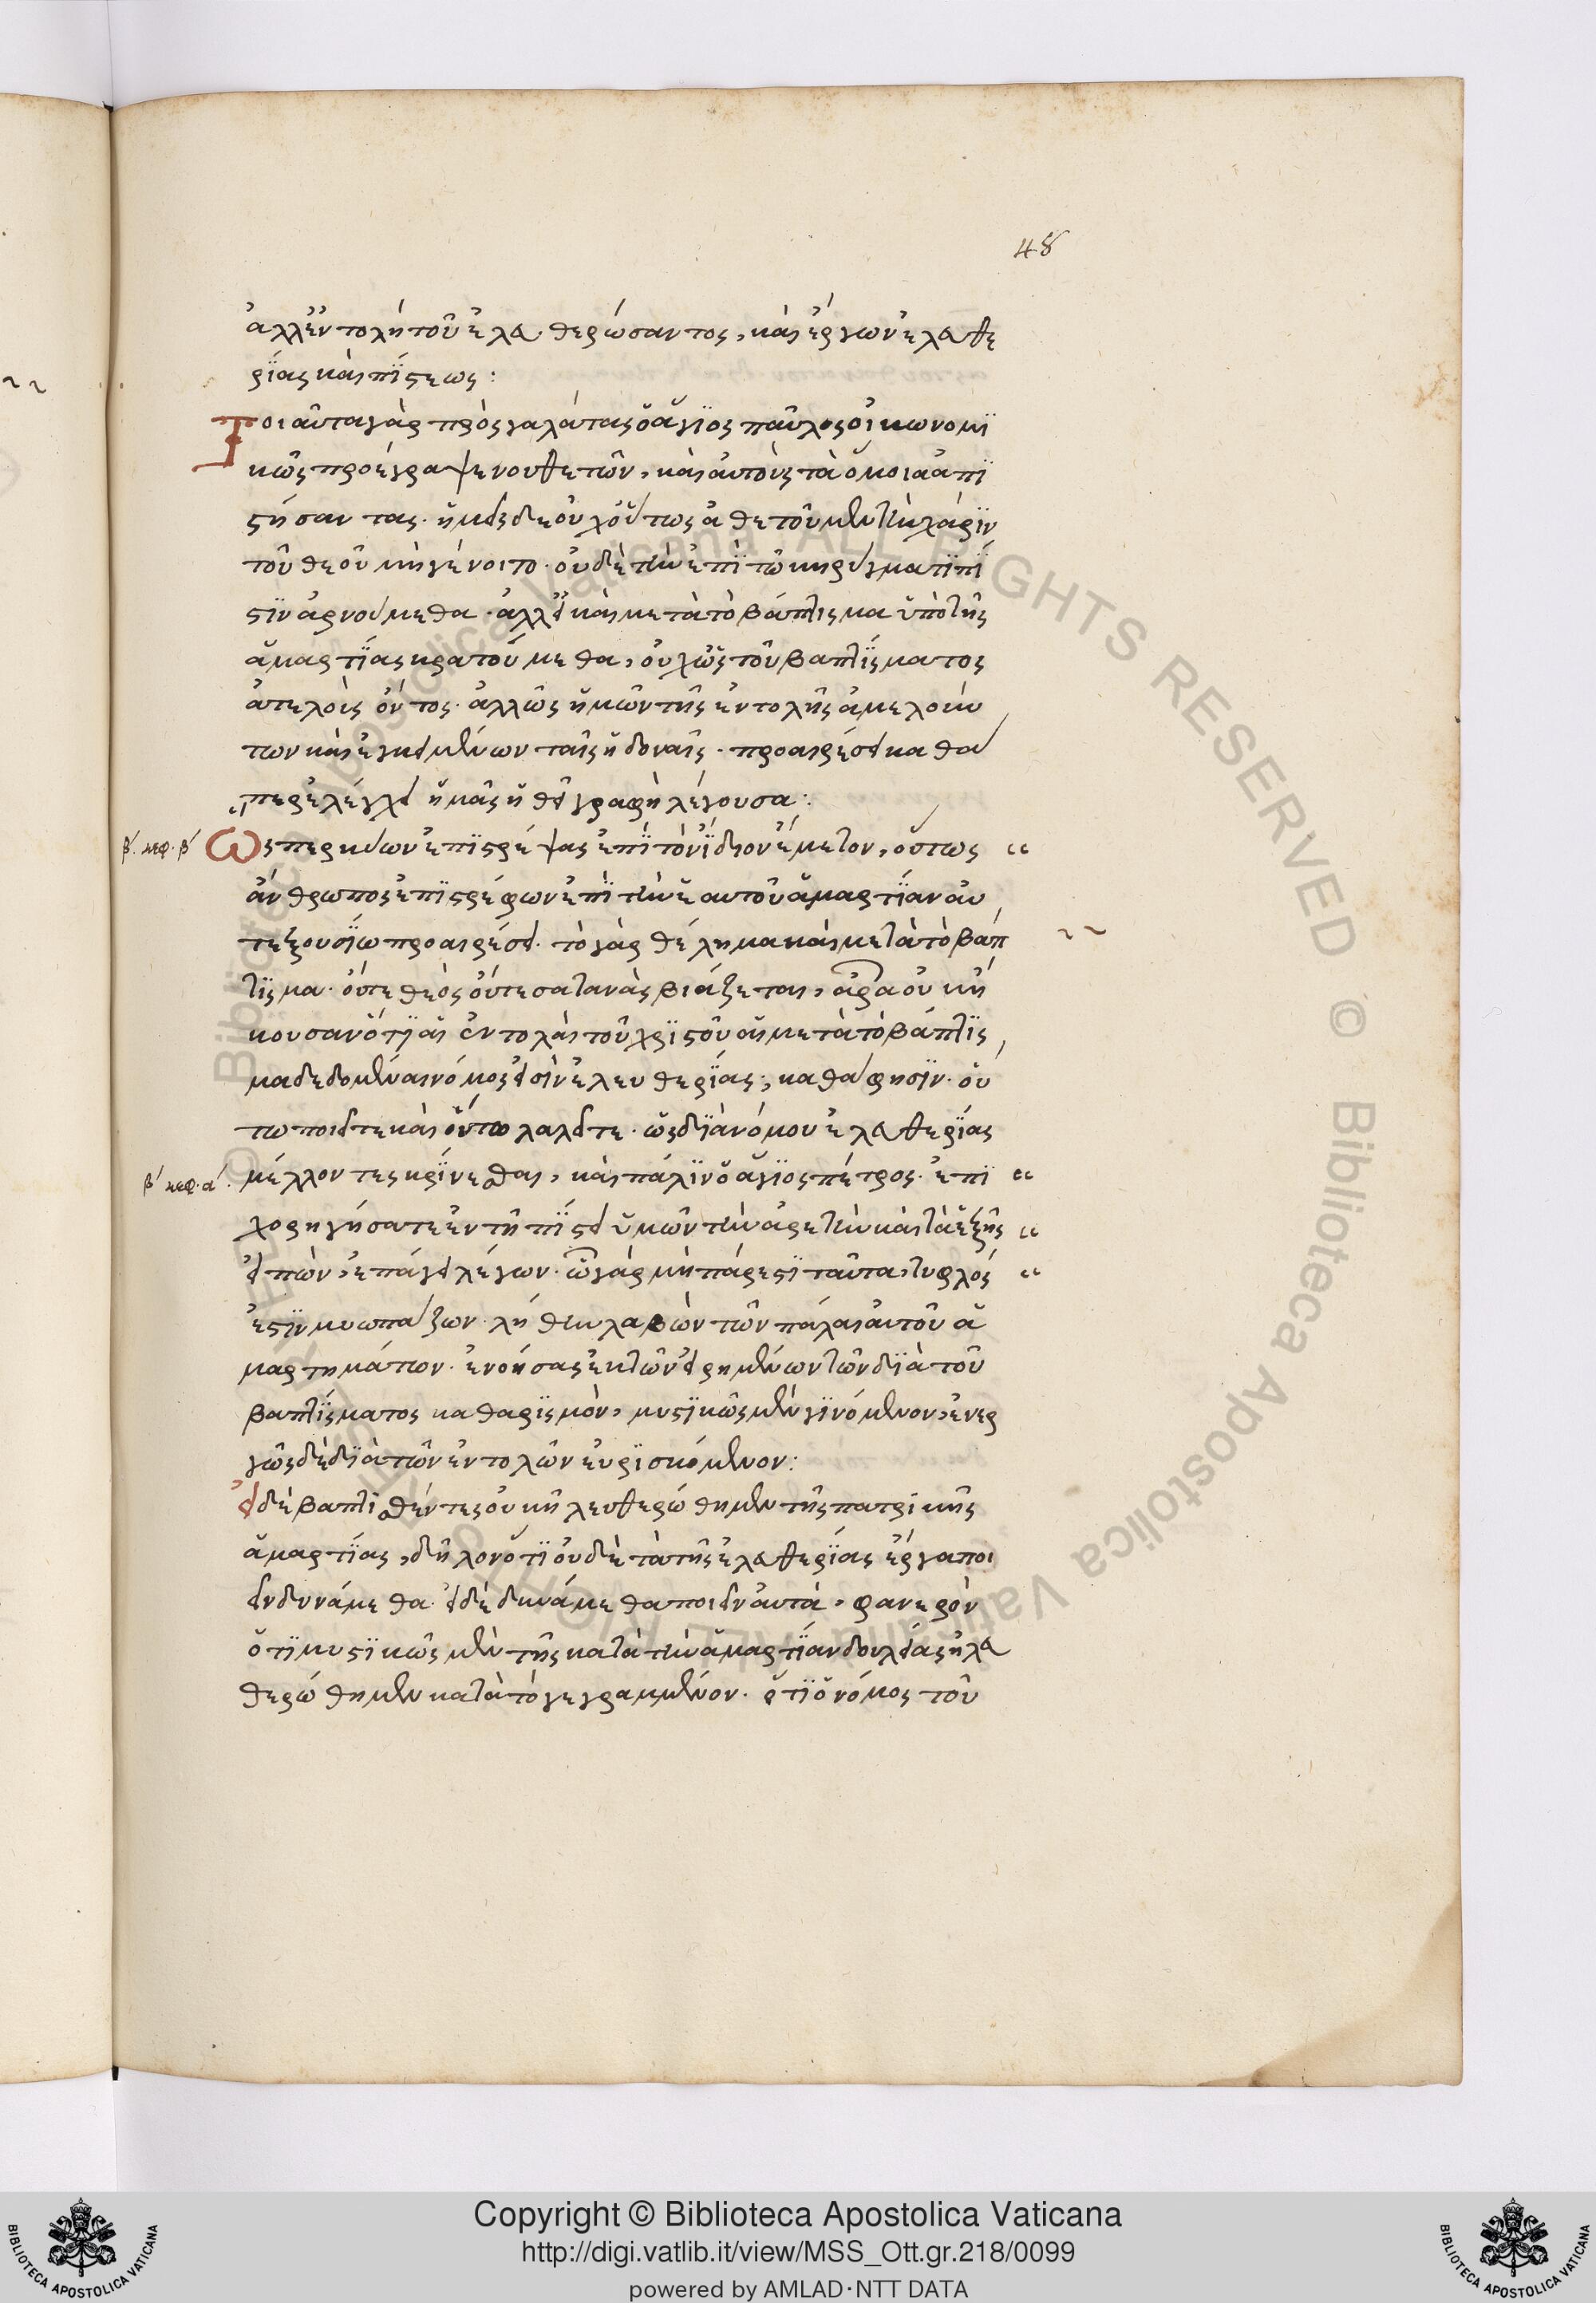 48
ἀλλ' ἐντολὴ τοῦ ἐλευθερώσαντος, καὶ ἔργων ἐλευθε
ρίας καὶ πίστεως:
Τοιαῦτα γὰρ πρὸς γαλάτας ὁ ἅγιος παῦλος οἰκωνομι
κῶς προέγραψε νουθετῶν, καὶ αὐτοὺς τὰ ὅμοια ἀπι
στήσαντας. ἡμεῖς δε οὐχ οὕτως ἀθετοῦμεν τὴν χάριν
τοῦ θεοῦ μὴ γένοιτο. οὐδὲ τὴν ἐπὶ τῶ κηρύγματι πί
στιν ἀρνούμεθα. ἀλλ' εἰ καὶ μετὰ τὸ βάπτισμα ὑπὸ τῆς
ἁμαρτίας κρατούμεθα, οὐχ ὡς τοῦ βαπτίσματος
ἀτελοῦς ὄντος. ἀλλ' ὡς ἡμῶν τῆς ἐντολῆς ἀμελούν
των καὶ ἐγκειμένων ταῖς ἡδοναῖς. προαιρέσει καθά
περ ἐλέγχει ἡμᾶς ἡ θεία γραφὴ λέγουσα:
β΄. κεφ. β΄
Ὥσπερ κύων ἐπιστρέψας ἐπὶ τὸν ἴδιον ἔμετον, οὕτως
ἄνθρωπος ἐπιστρέφων ἐπὶ τὴν ἑαυτοῦ ἁμαρτίαν αὐ
τεξουσίω προαιρέσει. τὸ γὰρ θέλημα καὶ μετὰ τὸ βάπ
τισμα. οὔτε θεὸς οὔτε σατανὰς βιάζεται, ἆρα οὐκ ἤ
κουσαν ὅτι αἱ ἐντολαὶ τοῦ χριστοῦ αἱ μετὰ τὸ βάπτισ
μα δεδομέναι νόμος εἰσὶν ἐλευθερίας, καθά φησιν. οὕ
τω ποιεῖτε καὶ οὕτω λαλεῖτε. ὡς διὰ νόμου ἐλευθερίας
β΄ κεφ. α΄.
μέλλοντες κρίνεσθαι, καὶ πάλιν ὁ ἅγιος πέτρος. ἐπι
χορηγήσατε ἐν τῆ πίστει ὑμῶν τὴν ἀρετὴν καὶ τὰ ἑξῆς
εἰπὼν, ἐπάγει λέγων. ὧ γὰρ μὴ πάρεστι ταῦτα, τυφλός
ἐστιν μυωπάζων λήθην λαβὼν τῶν πάλαι αὐτοῦ ἁ
μαρτημάτων. ἐνοήσας ἐκ τῶν εἰρημένων τῶν διὰ τοῦ
βαπτίσματος καθαρισμὸν, μυστικῶς μὲν γινόμενον, ἐνερ
γῶς δὲ διὰ τῶν ἐντολῶν εὑρισκόμενον:
εἰ δὲ βαπτισθέντες οὐκ ἠλευθερώθημεν τῆς πατρικῆς
ἁμαρτίας, δῆλον ὅτι οὐδὲ τὰ τῆς ἐλευθερίας ἔργα ποι
εῖν δυνάμεθα. εἰ δὲ δυνάμεθα ποιεῖν αὐτὰ, φανερὸν
ὅτι μυστικῶς μὲν τῆς κατὰ τὴν ἁμαρτίαν δουλείας ἠλευ
θερώθημεν κατὰ τὸ γεγραμμένον. ὅτι ὁ νόμος τοῦ
© Biblioteca Apostolica Vaticana ALL RIGHTS RESERVED © Biblioteca Apostolica Vaticana ALL RIGHTS RESERVED
Copyright © Biblioteca Apostolica Vaticana
http://digi.vatlib.it/view/MSS_Ott.gr.218/0099
powered by AMLAD·NTT DATA
BIBLIOTECA APOSTOLICA VATICANA
BIBLIOTECA APOSTOLICA VATICANA